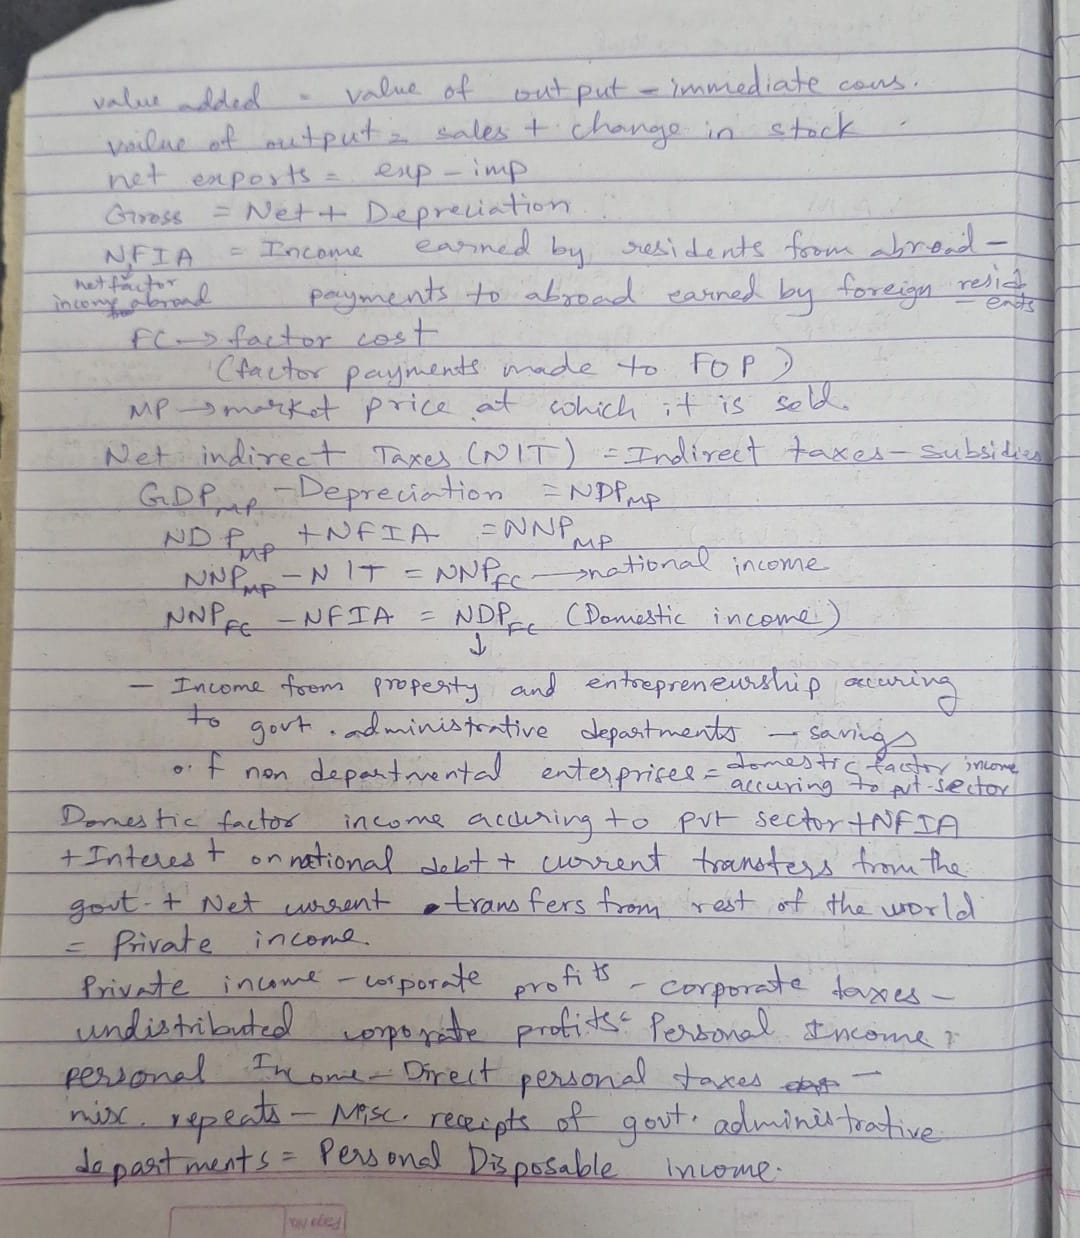 value added = value of output - immediate cons.
value of output = sales + change in stock
net exports = exp - imp
Gross = Net + Depreciation
NFIA = Income earned by residents from abroad -
net factor
income abroad
payments to abroad earned by foreign resid
- ents
FC → factor cost
(factor payments made to FOP)
MP → market price at which it is sold.
Net indirect Taxes (NIT) = Indirect taxes - subsidies
GDP MP - Depreciation = NDP MP
NDP MP + NFIA = NNP MP
NNP MP - NIT = NNP FC → national income
NNP FC - NFIA = NDP FC (Domestic income)
↓
- Income from property and entrepreneurship accuring
to govt. administrative departments - savings
of non departmental enterprises = domestic factor income
accuring to pvt-sector
Domestic factor income accuring to pvt sector + NFIA
+ Interest on national debt + current transfers from the
govt. + Net current transfers from rest of the world
= Private income.
Private income - corporate profits - corporate taxes -
undistributed corporate profits = Personal Income
personal Income - Direct personal taxes -
misc. repeats - Misc. receipts of govt. administrative
departments = Personal Disposable income.
Page No.